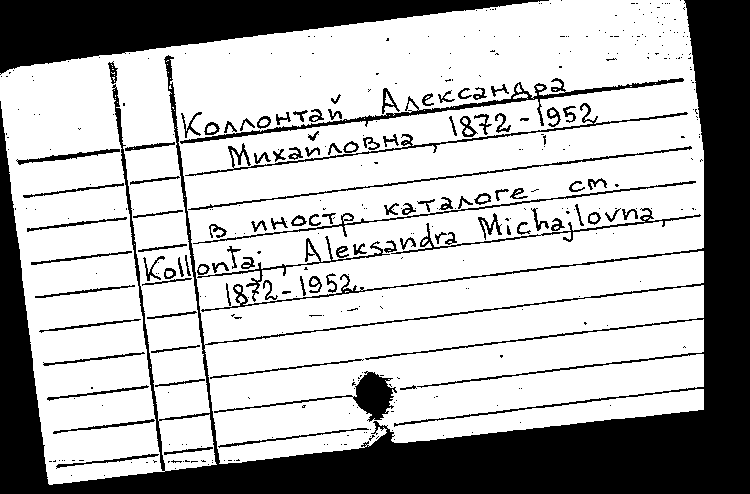 Коллонтай, Александра
Михайловна, 1872-1952
в иностр. каталоге см.
Kollontaj, Aleksandra Michajlovna,
1872-1952.